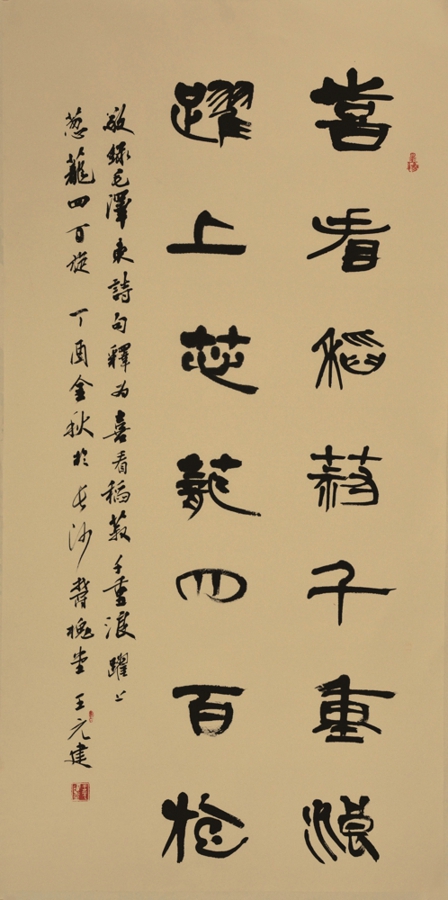 喜看稻菽千重浪
躍上葱蘢四百旋
敬録毛澤東詩句釋為喜看稻菽千重浪躍上
葱蘢四百旋 丁酉金秋於長沙 槐堂 王元建